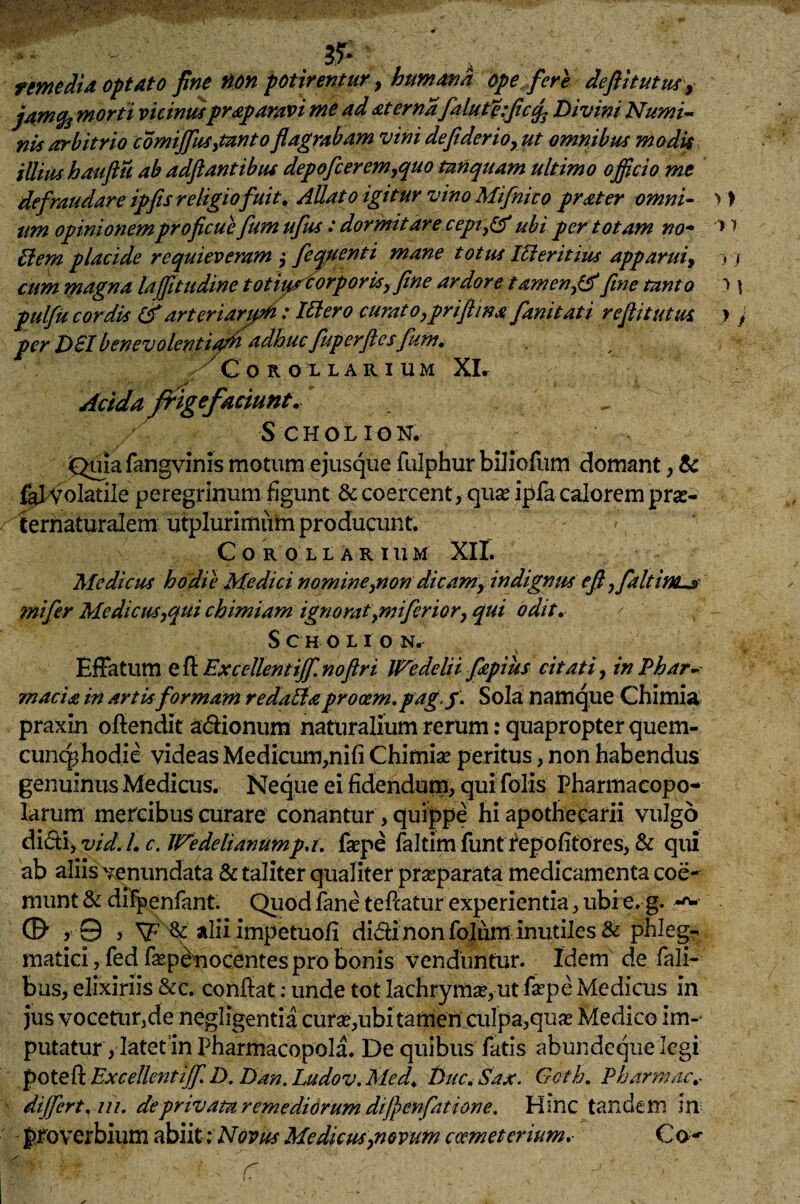 35.
remedia optato fine non potirentur, humanâ ope fere deſtitutus,
jamq; morti vicinus præparavi me ad æternâ ſalutē: ſicq; Divini Numi-
nis arbitrio cōmiſſus, tanto flagrabam vini deſiderio, ut omnibus modis
illius hauſtū ab adſtantibus depoſcerem, quo tanquam ultimo officio me
defraudare ipſis religio fuit. Allato igitur vino Miſnico præter omni-
um opinionem proficuè ſum uſus: dormitare cepi, & ubi per totam no-
ctem placide requieveram; ſequenti mane totus Ictericius apparui,
cum magna laſſitudine totius corporis, ſine ardore tamen, & ſine tanto
pulſu cordis & arteriarum: Ictero curato, priſtinæ ſanitati reſtitutus
per DEI benevolentiam adhuc ſuperſtes ſum.
COROLLARIUM XI.
Acida frigefaciunt.
SCHOLION.
Quia ſangvinis motum ejusque ſulphur bilioſum domant, &
ſal volatile peregrinum figunt & coercent, quæ ipſa calorem præ-
ternaturalem utplurimùm producunt.
COROLLARIUM XII.
Medicus hodiè Medici nomine, non dicam, indignus eſt, ſaltim
miſer Medicus, qui chimiam ignorat, miſerior, qui odit.
SCHOLION.
Effatum eſt Excellentiſſ. noſtri Wedelii ſæpius citati, in Phar-
macia in artis formam redacta proœm. pag. 5. Sola namque Chimia
praxin oſtendit actionum naturalium rerum: quapropter quem-
cunq; hodiè videas Medicum, niſi Chimiæ peritus, non habendus
genuinus Medicus. Neque ei fidendum, qui ſolis Pharmacopo-
larum mercibus curare conantur, quippè hi apothecarii vulgò
dicti, vid. l. c. Wedelianum p. 1. ſæpè ſaltim ſunt repoſitores, & qui
ab aliis venundata & taliter qualiter præparata medicamenta coë-
munt & diſpenſant. Quod ſanè teſtatur experientia, ubi e. g.
🜔, 🜍 & alii impetuoſi dicti non ſolùm inutiles & phleg-
matici, ſed ſæpè nocentes pro bonis venduntur. Idem de ſali-
bus, elixiriis &c. conſtat: unde tot lachrymæ, ut ſæpè Medicus in
jus vocetur, de negligentiâ curæ, ubi tamen culpa, quæ Medico im-
putatur, latet in Pharmacopolâ. De quibus ſatis abundeque legi
poteſt Excellentiſſ. D. Dan. Ludov. Med. Duc. Sax. Goth. Pharmac.
diſſert. III. de privata remediorum diſpenſatione. Hinc tandem in
proverbium abiit: Novus Medicus, novum cœmeterium.
Co-